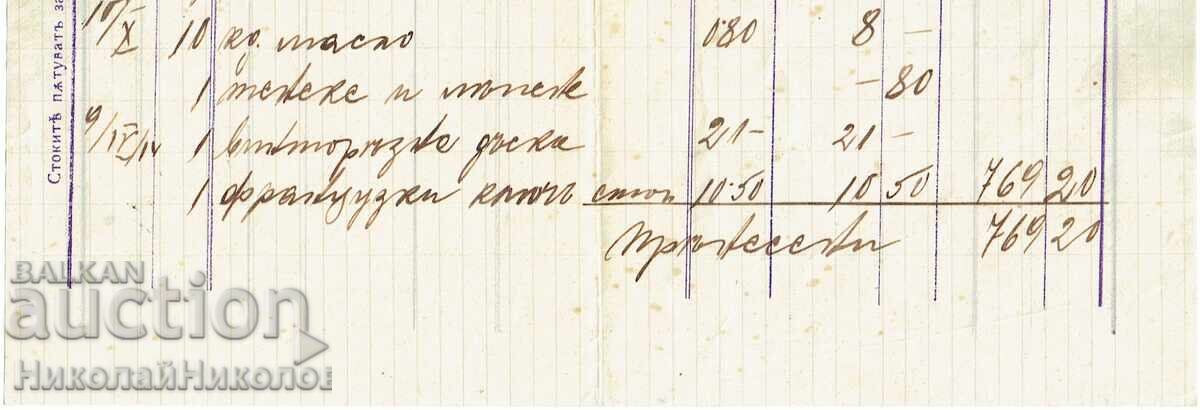 Стокитѣ пѫтуватъ за
10/X 10 кг. масло 0.80 8 —
1 тенеке и —80
9/IV/14 1 дъска 21— 21—
1 французки ключъ 10·50 10 50 769 20
769 20
BALKAN
auction
НиколайНиколов